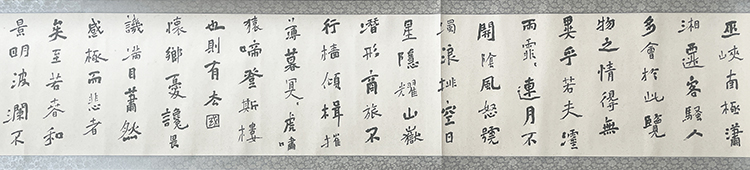 巫峽南極瀟
湘遷客騷人
多會於此覽
物之情得無
異乎若夫霪
雨霏〻連月不
開陰風怒號
濁浪排空日
星隱耀山嶽
潛形商旅不
行檣傾楫摧
薄暮冥〻虎嘯
猿啼登斯樓
也則有去國
懷鄉憂讒畏
譏滿目蕭然
感極而悲者
矣至若春和
景明波瀾不